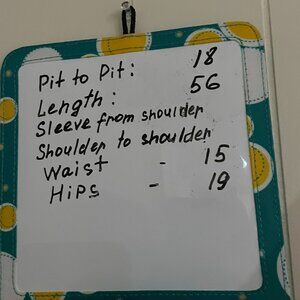 Pit to Pit: 18
Length: 56
Sleeve from shoulder
Shoulder to shoulder
Waist - 15
Hips - 19